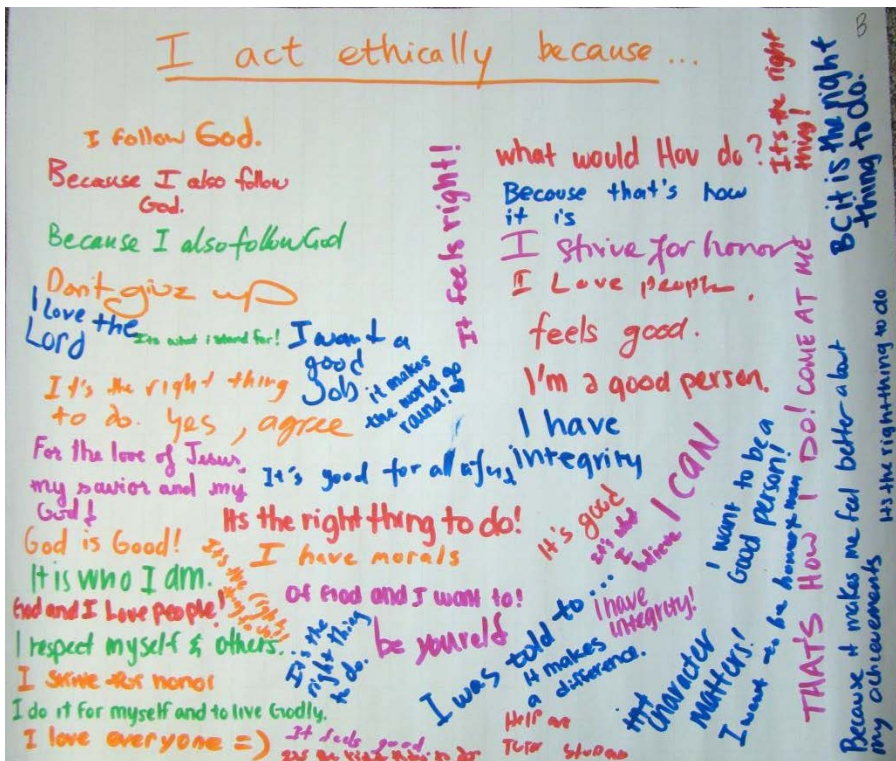 B
I act ethically because...
I follow God.
Because I also follow
God.
Because I also follow God
Don't give up
I love the
Lord
Its what i stand for!
I want a
good
Job
it makes
the world go
round!
It's the right thing
to do. yes, agree
For the love of Jesus,
my savior and my
God!
It's good for all of us
Its the right thing to do!
God is Good!
It's the
I have morals
It is who I am.
God and I Love people!
Of God and I want to!
I respect myself & others.
It's the
right thing
to do.
be yourself
I strive for honor
I do it for myself and to live Godly.
I love everyone =)
It feels good
It feels right!
what would Hov do?
Because that's how
it is
I strive for honor
I Love people,
feels good.
I'm a good person.
I have
integrity
It's good
It's what
I
believe
I CAN
I was told to...
it makes
a difference.
I have
integrity!
Character
Matters!
Help
I want to be a
Good person!
I want to be
THAT'S HOW I DO! COME AT ME
It's the right
thing!
BC it is the right
thing to do.
Because it makes me feel better about
my achievements
Its the right thing to do